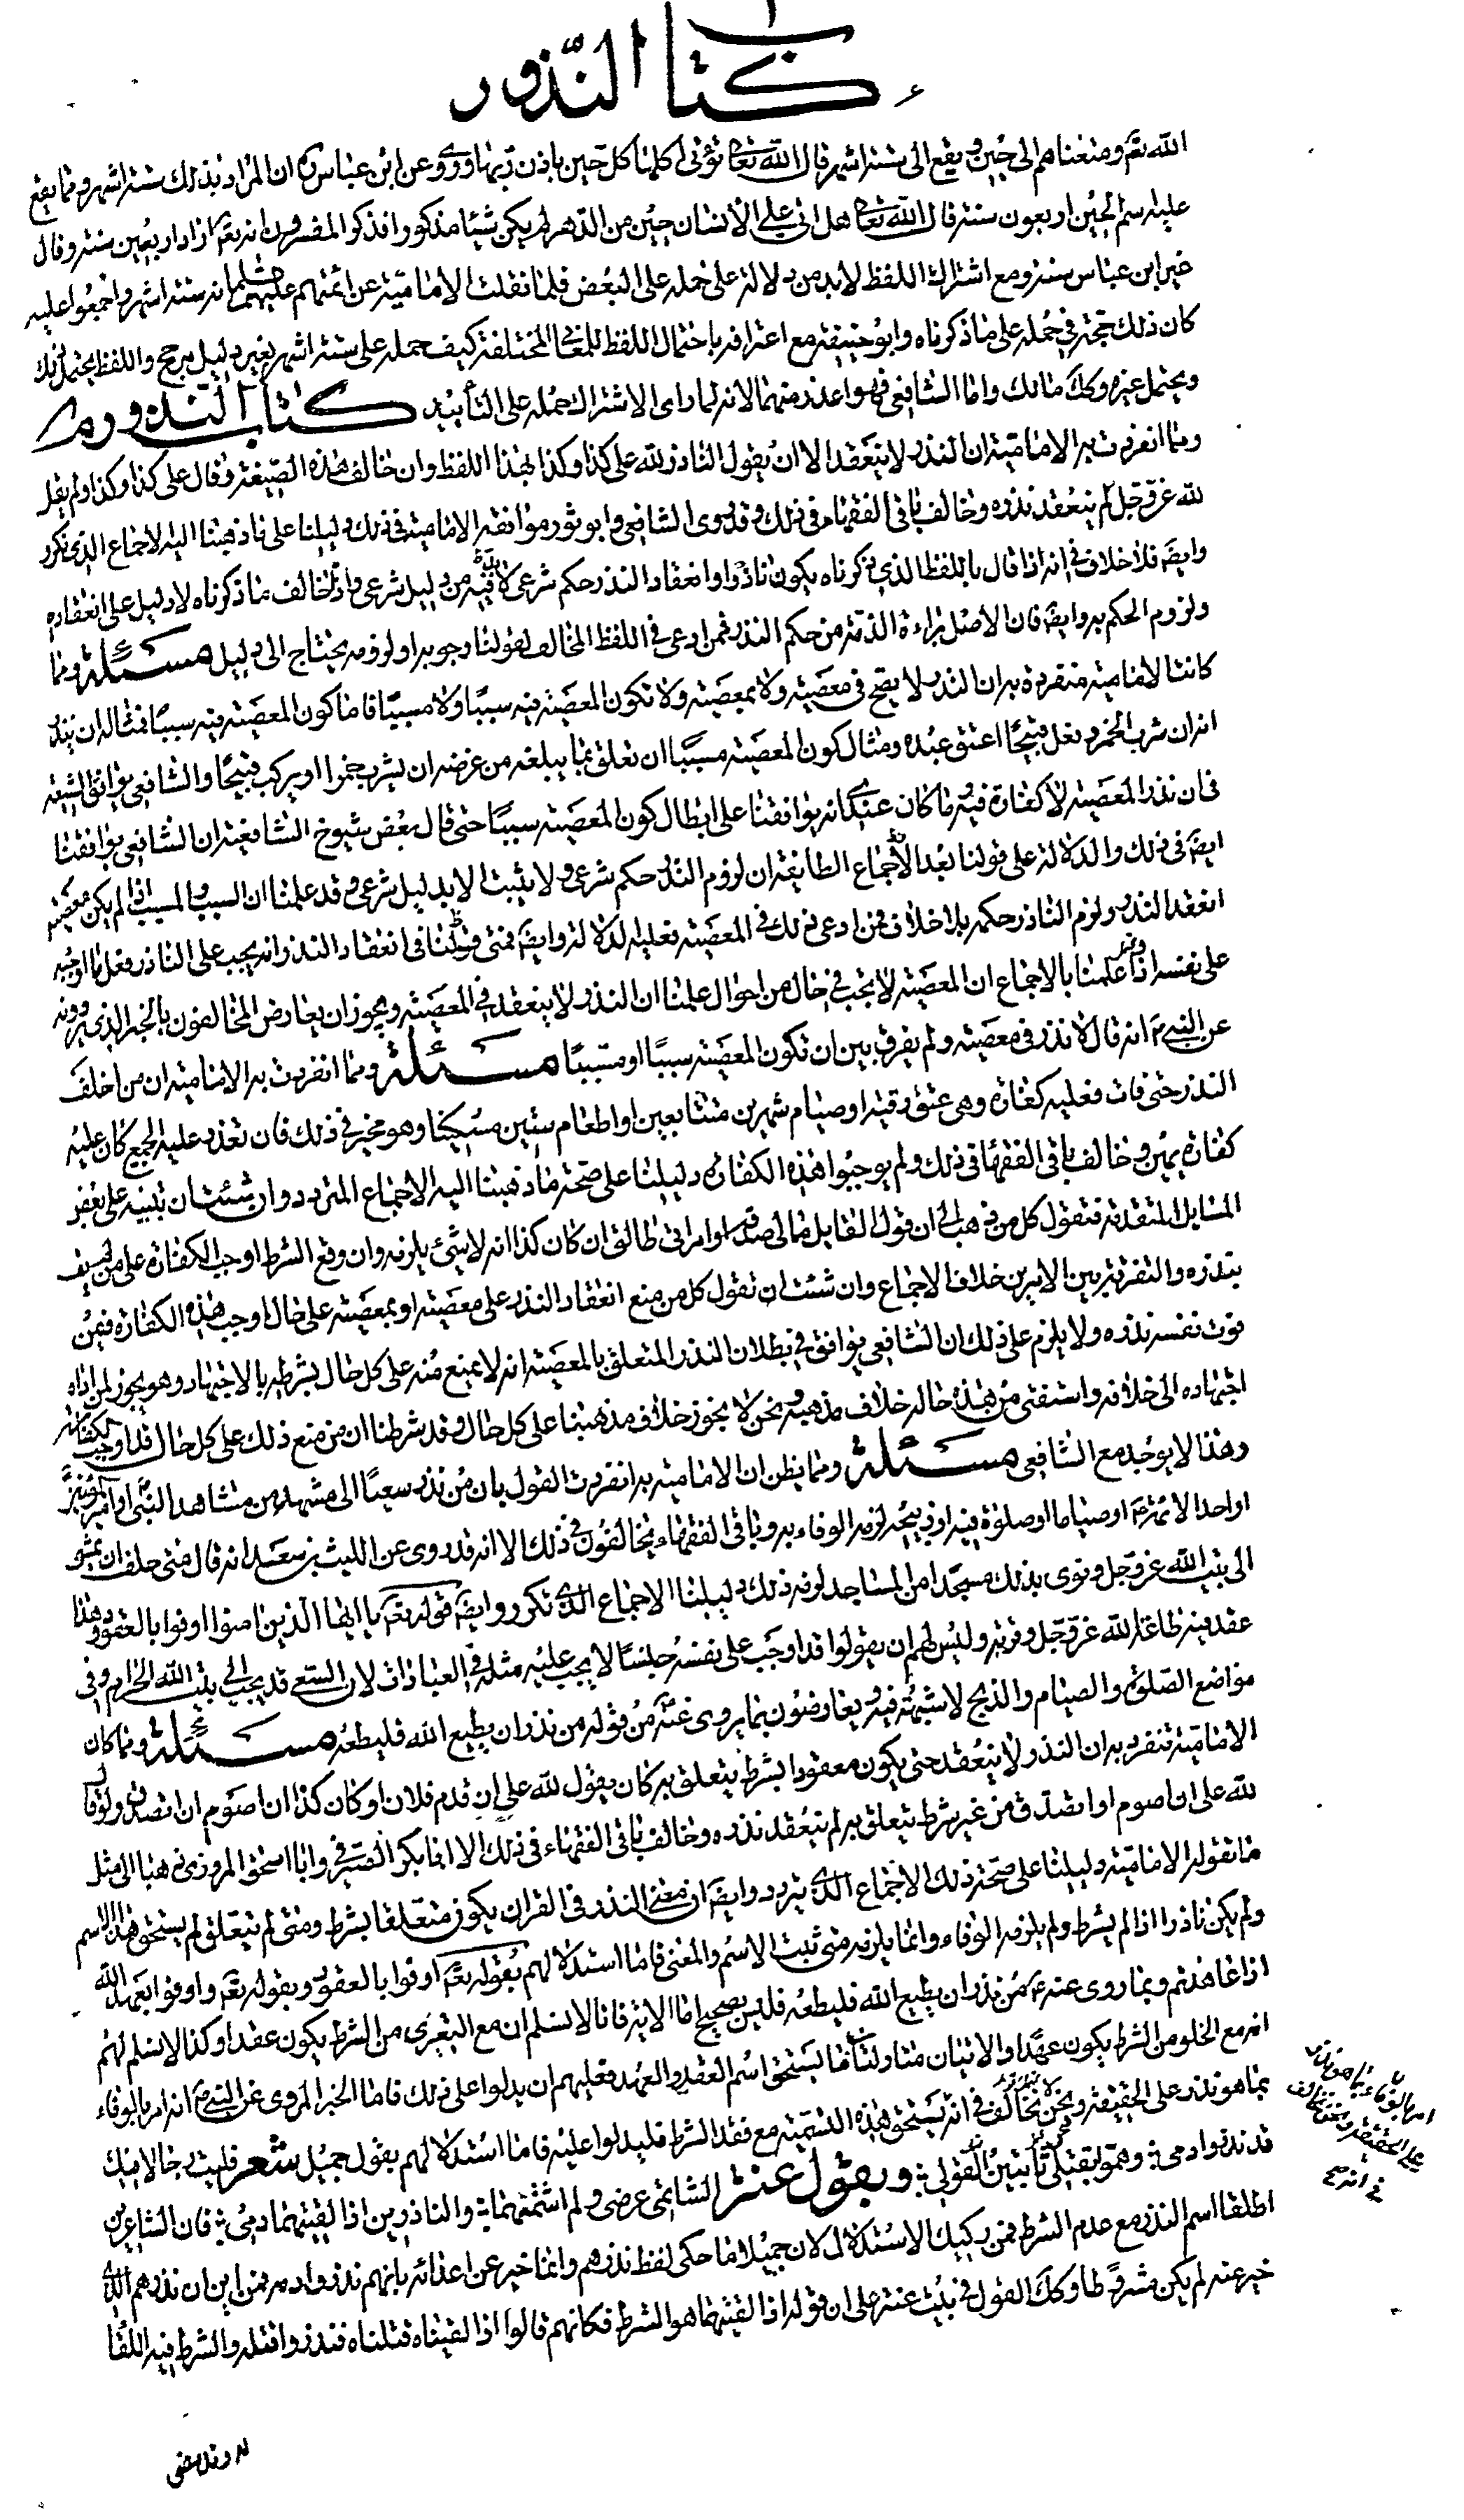 كتاب النذور
الله تعم ومتعناهم الى حين ويقع الى ستة اشهر قال الله تعالى تؤتى اكلها كل حين باذن ربها وروى عن ابن عباس ره ان المراد بذلك ستة اشهر ومما يقع
عليه اسم الحين اربعون سنة قال الله تعالى هل اتى على الانسان حين من الدهر لم يكن شيئا مذكورا فذكر المفسرون انه تعم اراد اربعين سنة وقال
غير ابن عباس سنة ومع اشتراك اللفظ لا بد من دلالة على حمله على البعض فلما نقلت الامامية عن ائمتهم عليهم السلم انه ستة اشهر واجمعوا عليه
كان ذلك حجة في حمله على ما ذكرناه وابو حنيفة مع اعترافه باحتمال اللفظ للمعاني المختلفة كيف حمله على ستة اشهر بغير دليل مرجح واللفظ يحتمل ذلك
ويحتمل غيره وكك مالك واما الشافعي فهو اعذر منهما لانه لما راى الاشتراك حمله على التأبيد كتاب النذور مسئلة
ومما انفردت به الامامية ان النذر لا ينعقد الا ان يقول الناذر لله على كذا وكذا بهذا اللفظ وان خالف هذه الصيغة وقال على كذا وكذا ولم يقل
لله عز وجل لم ينعقد نذره وخالف باقى الفقهاء فى ذلك وقد روى الشافعي وابو ثور موافقة الامامية في ذلك دليلنا على ما ذهبنا اليه الاجماع الذى تكرر
وايضا فلا خلاف في انه اذا قال باللفظ الذي ذكرناه يكون ناذرا وانعقاد النذر حكم شرعى لا بد فيه من دليل شرعى واذا خالف ما ذكرناه لا دليل على انعقاده
ولزوم الحكم به وايضا فان الاصل براءة الذمة من حكم النذر فمن ادعى فى اللفظ المخالف لقولنا وجوبه او لزومه يحتاج الى دليل مسئلة ومما
كانت الامامية منفردة به ان النذر لا يصح في معصية ولا بمعصية ولا تكون المعصية فيه سببا ولا مسببا فاما كون المعصية فيه سببا فمثاله ان ينذر
انه ان شرب الخمر وفعل قبيحا اعتق عبده ومثال كون المعصية مسببا ان تعلق بما يبلغه من غرضه ان يشرب خمرا او يركب قبيحا والشافعي يوافق الشيعة
فى ان نذر المعصية لا كفارة فيه وما كان عندى انه يوافقنا على ابطال كون المعصية سببا حتى قال بعض شيوخ الشافعية ان الشافعي يوافقنا
ايضا فى ذلك والدلالة على قولنا بعد الاجماع الطايفة ان لزوم النذر حكم شرعى ولا يثبت الا بدليل شرعى وقد علمنا ان السبب والمسبب اذا لم يكن معصية
انعقد النذر ولزم الناذر حكمه بلا خلاف فمن ادعى ذلك في المعصية فعليه الدلالة وايضا فمعنى قولنا فى انعقاد النذر انه يجب على الناذر فعل ما اوجبه
على نفسه واذا علمنا بالاجماع ان المعصية لا تجب في حال من احوال علمنا ان النذر لا ينعقد في المعصية ويجوز ان يعارض المخالفون بالخبر الذى يروونه
عن النبى ص انه قال لا نذر في معصية ولم يفرق بين ان تكون المعصية سببا او مسببا مسئلة ومما انفردت به الامامية ان من اخلف
النذر حتى فات فعليه كفارة وهى عتق رقبة او صيام شهرين متتابعين او اطعام ستين مسكينا وهو مخير في ذلك فان تعذر عليه الجميع كان عليه
كفارة يمين وخالف باقى الفقهاء فى ذلك ولم يوجبوا هذه الكفارة دليلنا على صحة ما ذهبنا اليه الاجماع المتردد وان شئت ان تبنيه على بعض
المسايل المتقدمة فتقول كل من ذهب الى ان قول القايل مالى صدقة او امراتى طالق ان كان كذا انه لا شئ يلزمه وان وقع الشرط اوجب الكفارة على من لم يف
بنذره والتفرقة بين الامرين خلاف الاجماع وان شئت ان تقول كل من منع انعقاد النذر على معصية او بمعصية على حال اوجب هذه الكفارة فيمن
فوت نفسه نذره ولا يلزم على ذلك ان الشافعي يوافق في بطلان النذر المتعلق بالمعصية انه لا يمنع منه على كل حال بشرطه بالاجتهاد وهو يجوز لمن اداه
اجتهاده الى خلافه واستفتى من هذه حاله خلاف مذهبه ونحن لا نجوز خلاف مذهبنا على كل حال وقد شرطنا ان من منع ذلك على كل حال فقد اوجب الكفارة
وهذا لا يوجد مع الشافعى مسئلة ومما يظن ان الامامية به انفردت القول بان من نذر سعيا الى مشهد من مشاهد النبى ص او امير المؤمنين
او احد الائمة ع او صياما او صلوة فيه او ذبيحة لزمه الوفاء به وباقى الفقهاء يخالفون في ذلك الا انه قد روى عن الليث بن سعد انه قال متى حلف ان يمشى
الى بيت الله عز وجل ونوى بذلك مسجدا من المساجد لزمه ذلك دليلنا الاجماع الذى تكرر وايضا قوله تعم يا ايها الذين امنوا اوفوا بالعقود وهذا
عقد فيه طاعة لله عز وجل وقربة وليس لهم ان يقولوا قد اوجب على نفسه جنسا لا يجب عليه مثله في العبادات لان السعى قد يجب الى بيت الله الحرام وفى
مواضع الصلوة والصيام والذبح لا شبهة فيه ويعارضون بما يروى عنه من قوله من نذر ان يطيع الله فليطعه مسئلة ومما كان
الامامية تنفرد به ان النذر لا ينعقد حتى يكون معقودا بشرط يتعلق به كان يقول لله على ان قدم فلان او كان كذا ان اصوم او اتصدق ولو قال
لله على ان اصوم او اتصدق من غير شرط يتعلق به لم ينعقد نذره وخالف باقى الفقهاء في ذلك الا ان ابا بكر الصيرفى وابا اسحق المروزى ذهبا الى مثل
ما تقوله الامامية دليلنا على صحة ذلك الاجماع الذى يتردد وايضا ان معنى النذر فى القران يكون متعلقا بشرط ومتى لم يتعلق لم يستحق هذا الاسم
ولم يكن ناذرا اذا لم يشرط ولم يلزمه الوفاء وانما يلزمه متى ثبت الاسم والمعنى فاما استدلالهم بقوله تعم اوفوا بالعقود وبقوله تعم واوفوا بعهد الله
اذا عاهدتم وبما روى عنه ع من نذر ان يطيع الله فليطعه فليس بصحيح اما الاية فانا لا نسلم ان مع التعرى من الشرط يكون عقدا وكذا لا نسلم لهم
انه مع الخلو من الشرط يكون عهدا والايتان متناولتان ما يستحق اسم العقد والعهد فعليهم ان يدلوا على ذلك فاما الخبر المروى عن النبى ص انه امر بالوفاء
بما هو نذر على الحقيقة ونحن نخالف في انه يستحق هذه التسمية مع فقد الشرط فليدلوا عليه فاما استدلالهم بقول جميل شعر فليت رجالا فيك
قد نذروا دمى وهموا بقتلى يا بثين لقونى وبقول عنتر الشاتمى عرضى ولم اشتمهما والناذرين اذا لقيتهما دمى فان الشاعرين
اطلقا اسم النذر مع عدم الشرط فمن ركيك الاستدلال لان جميلا ما حكى لفظ نذرهم وانما خبر عن اعدائه بانهم نذروا دمه فمن اين ان نذرهم الذى
خبر عنه لم يكن مشروطا وكك القول في بيت عنتر على ان قوله اذا لقيتهما هو الشرط فكانهم قالوا اذا لقيناه قتلناه فنذروا قتله والشرط فيه اللقا